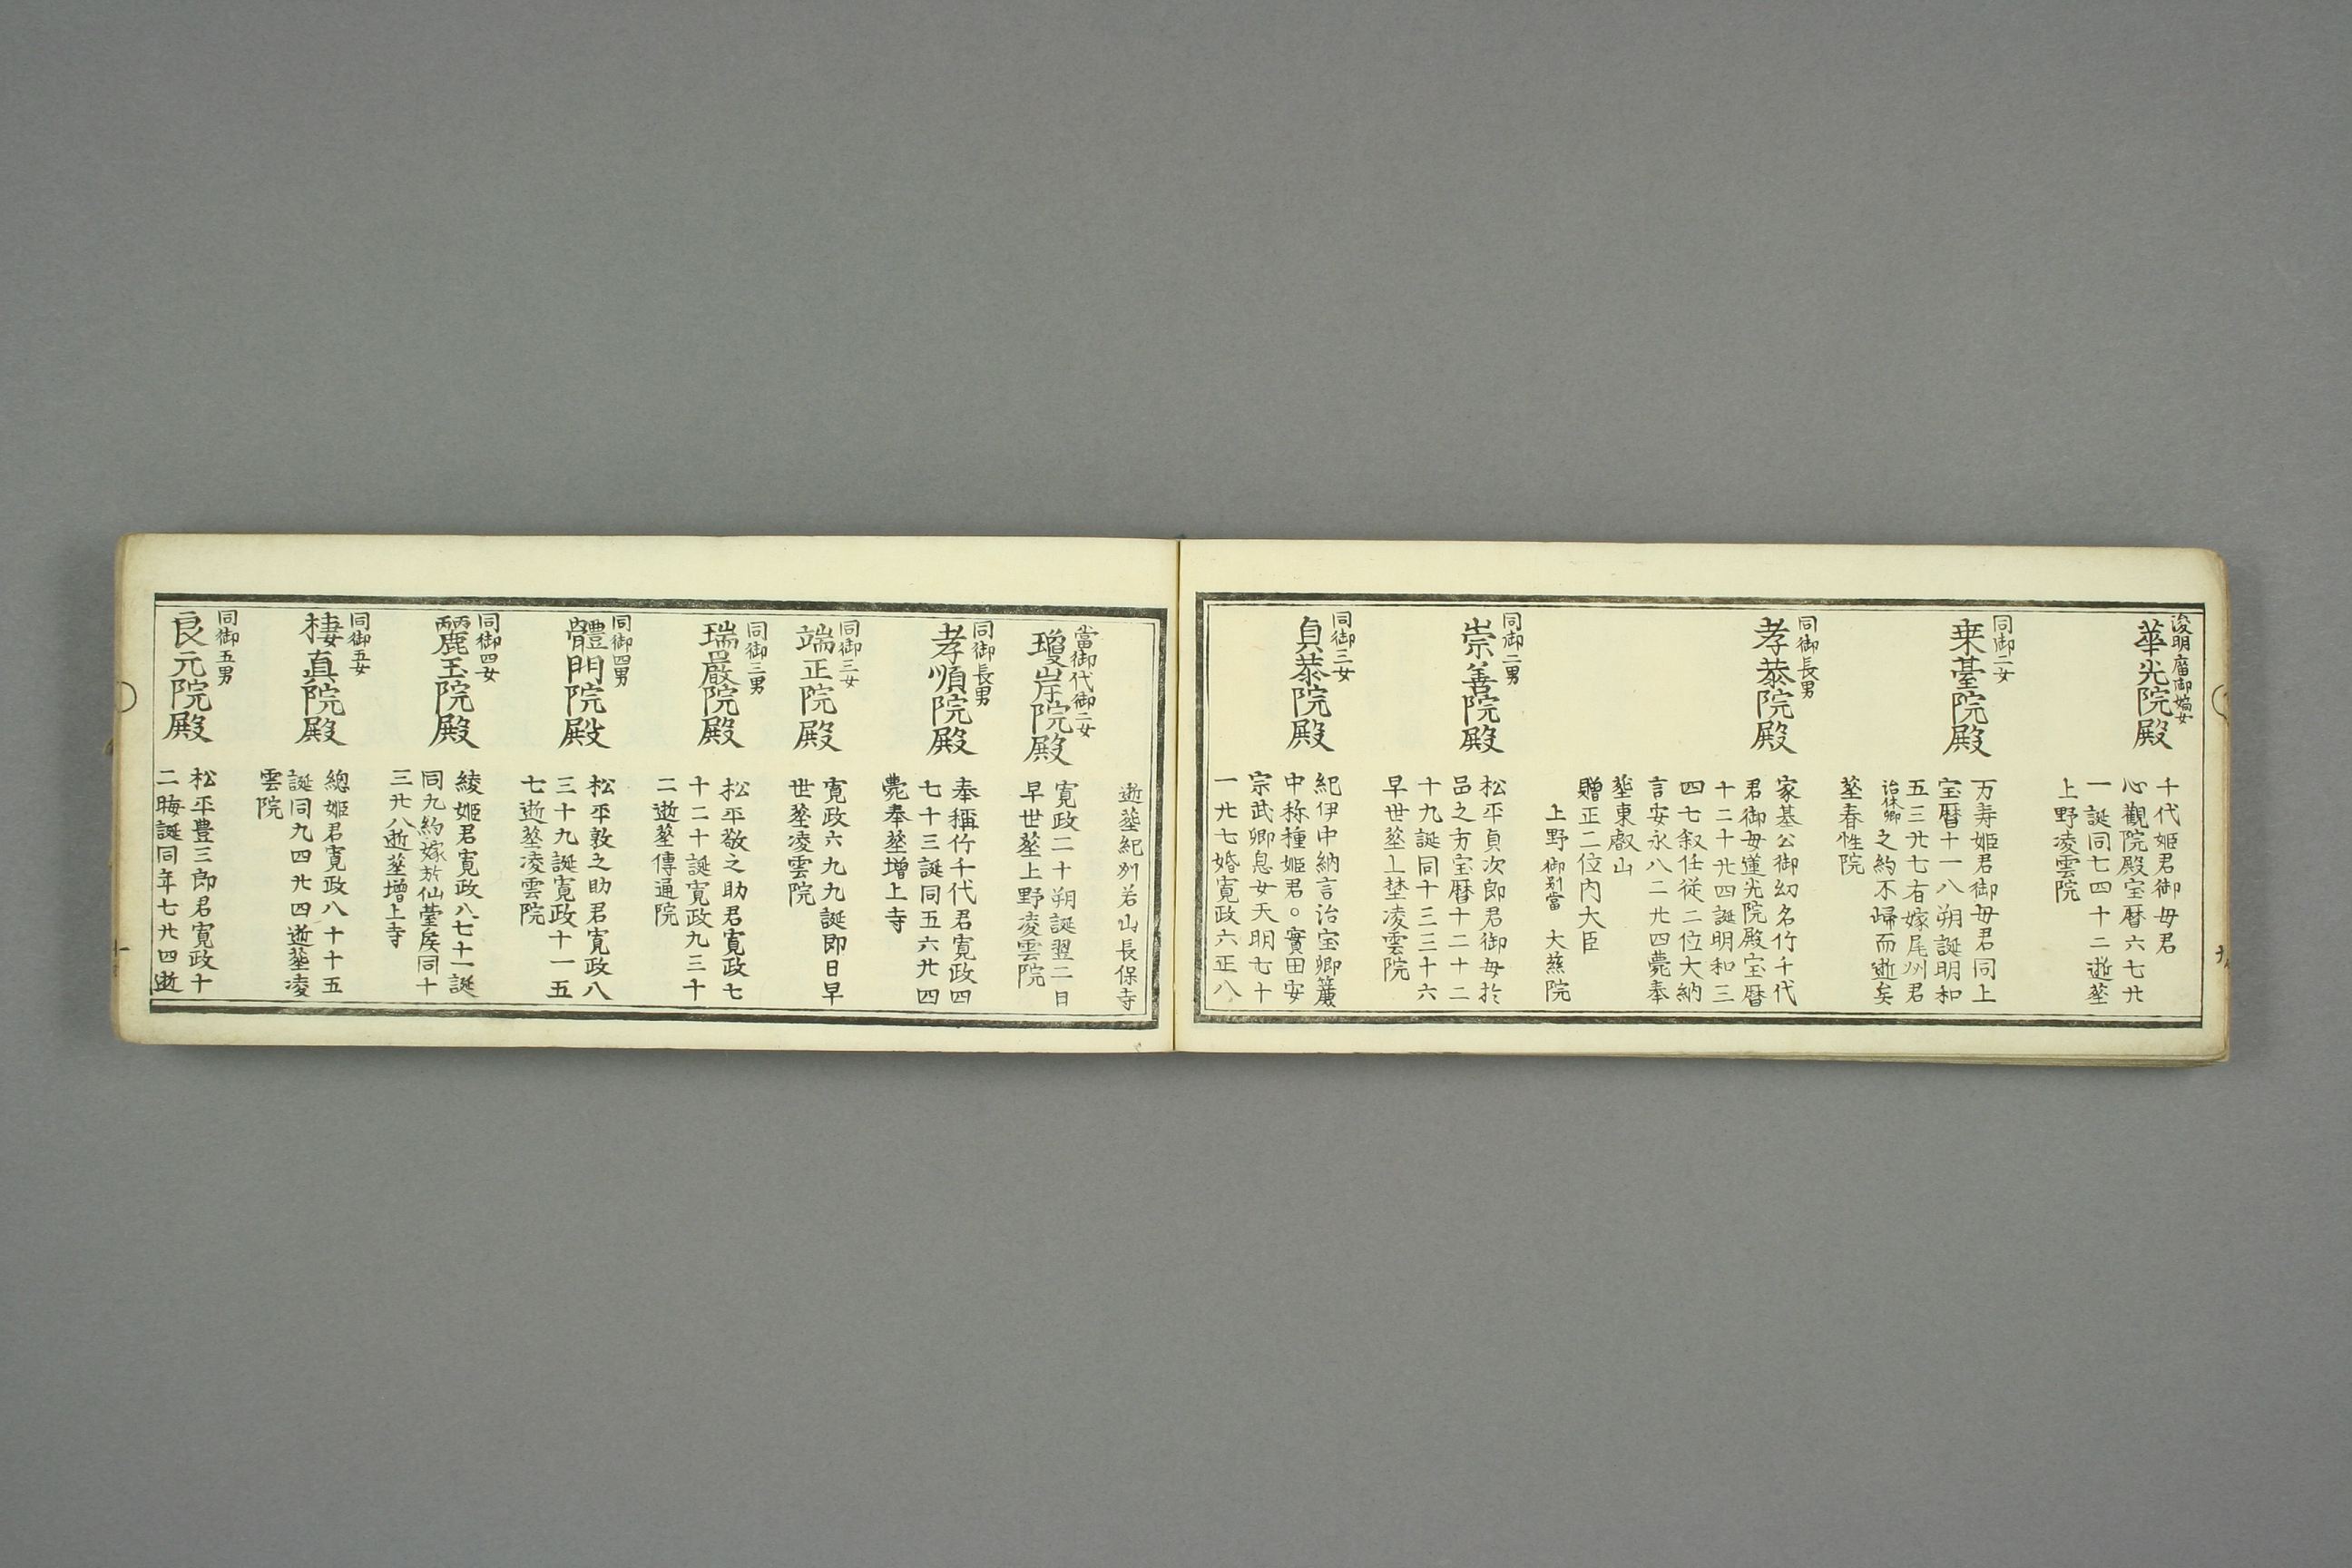 浚明廟御嫡女
華光院殿
千代姫君御母君
心觀院殿宝暦六七廾
一誕同七四十二逝葬
上野凌雲院
同御二女
乗臺院殿
万寿姫君御母君同上
宝暦十一八朔誕明和
五三廾七有嫁尾州君
治休卿之約不歸而逝矣
葬春性院
同御長男
孝恭院殿
家基公御幼名竹千代
君御母蓮光院殿宝暦
十二十廾四誕明和三
四七叙任従二位大納
言安永八二廾四薨奉
葬東叡山
贈正二位内大臣
上野御別當 大慈院
同御二男
崇善院殿
松平貞次郎君御母於
品之方宝暦十二十二
十九誕同十三三十六
早世葬上埜凌雲院
同御三女
貞恭院殿
紀伊中納言治宝卿簾
中称種姫君。實田安
宗武卿息女天明七十
一廾七婚寛政六正八
逝葬紀州若山長保寺
當御代御二女
瓊岸院殿
寛政二十朔誕翌二日
早世葬上野凌雲院
同御長男
孝順院殿
奉稱竹千代君寛政四
七十三誕同五六廾四
薨奉葬增上寺
同御三女
端正院殿
寛政六九九誕即日早
世葬凌雲院
同御三男
瑞嚴院殿
松平敬之助君寛政七
十二十誕寛政九三十
二逝葬傳通院
同御四男
體門院殿
松平敦之助君寛政八
三十九誕寛政十一五
七逝葬凌雲院
同御四女
麗玉院殿
綾姫君寛政八七十一誕
同九約嫁於仙臺侯同十
三廾八逝葬增上寺
同御五女
棲真院殿
總姫君寛政八十十五
誕同九四廾四逝葬凌
雲院
同御五男
良元院殿
松平豊三郎君寛政十
二晦誕同年七廾四逝